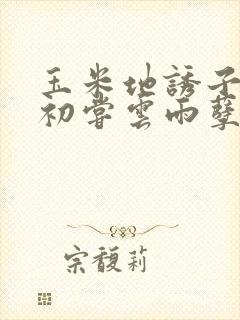 玉米地誘子
初嘗雲雨孽
宗馥莉